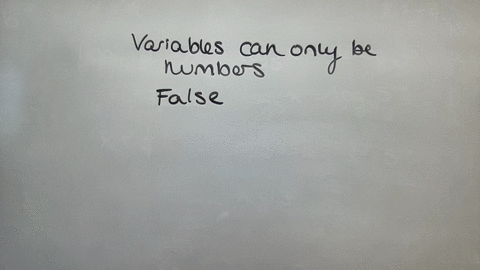 Variables can only be
numbers
False